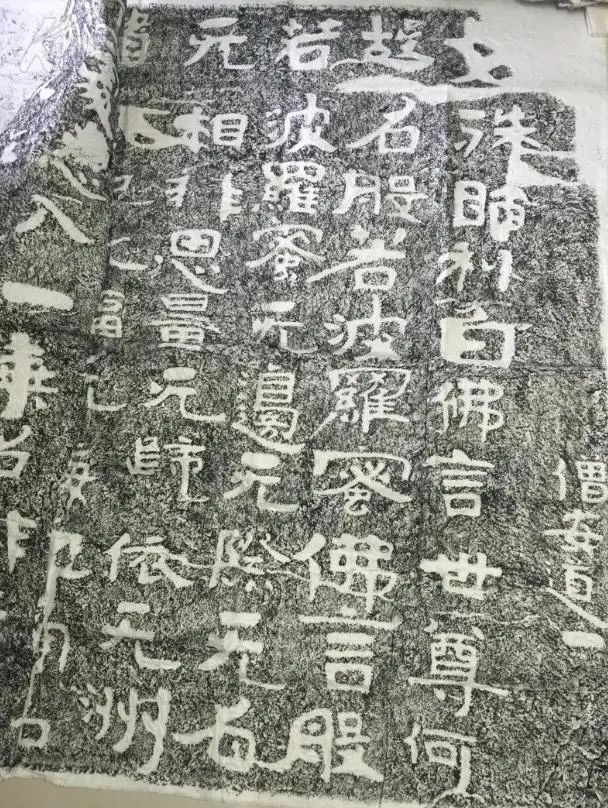 僧安道一
文殊師利白佛言世尊何
故名般若波羅蜜佛言般
若波羅蜜无邊无際无名
无相非思量无歸依无洲
入一乘名非